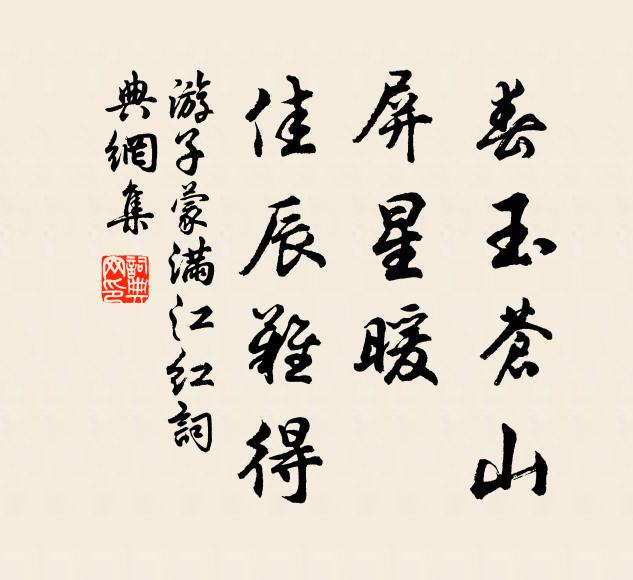 春玉蒼山
屏星暖
佳辰難得
游子蒙滿江紅詞
典網集
詞典
网印